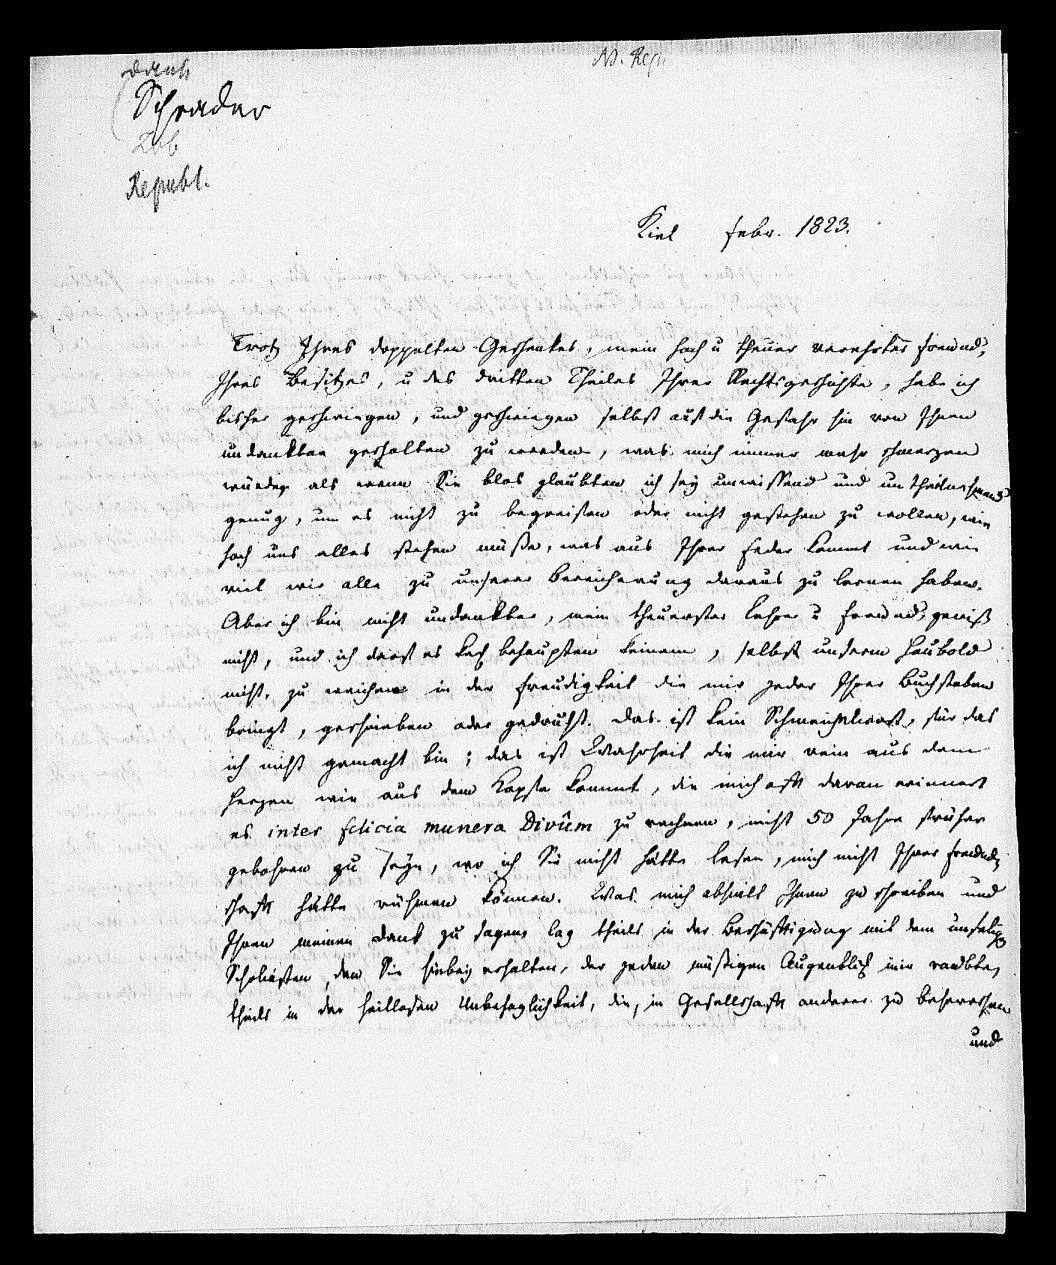 Dank
Schrader
Lob
Republ.
Kiel Febr. 1823.
Trotz Ihres doppelten Geschenkes, mein hoch u theuer verehrter Freund,
Ihres Besitzes, u des dritten Theiles Ihrer Rechtsgeschichte, habe ich
bisher geschwiegen, und geschwiegen selbst auf die Gefahr hin von Ihnen
undankbar gescholten zu werden, was mich immer mehr schmerzen
würde, als wenn Sie blos glaubten ich sey unwissend und untheilnehmend
genug, um es nicht zu begreifen oder nicht gestehen zu wollen, wie
hoch uns alles stehen müße, was aus Ihrer Feder kommt und wie
viel wir alle zu unserer Bereicherung daraus zu lernen haben.
Aber ich bin nicht undankbar, mein theuerster Lehrer u Freund, gewiß
nicht, und ich darf es keck behaupten keinem, selbst unserm Haubold
nicht, zu weichen in der Freudigkeit die mir jeder Ihrer Buchstaben
bringt, geschrieben oder gedruckt. Das ist kein Schmeichelwort, für das
ich nicht gemacht bin; das ist Wahrheit die mir rein aus dem
Herzen wie aus dem Kopfe kommt, die mich oft daran erinnert
es inter felicia munera Divûm zu rechnen, nicht 50 Jahre früher
gebohren zu seyn, wo ich Sie nicht hätte lesen, mich nicht Ihrer Freund-
schaft hätte rühmen können. Was mich abhielt Ihnen zu schreiben und
Ihnen meinen Dank zu sagen lag theils in der Beschäftigung mit dem unseligen
Scholiasten, den Sie hiebey erhalten, der jeden müßigen Augenblick mir raubte,
theils in der heillosen Unbehaglichkeit, die, in Gesellschaft anderer zu beherrschen
und